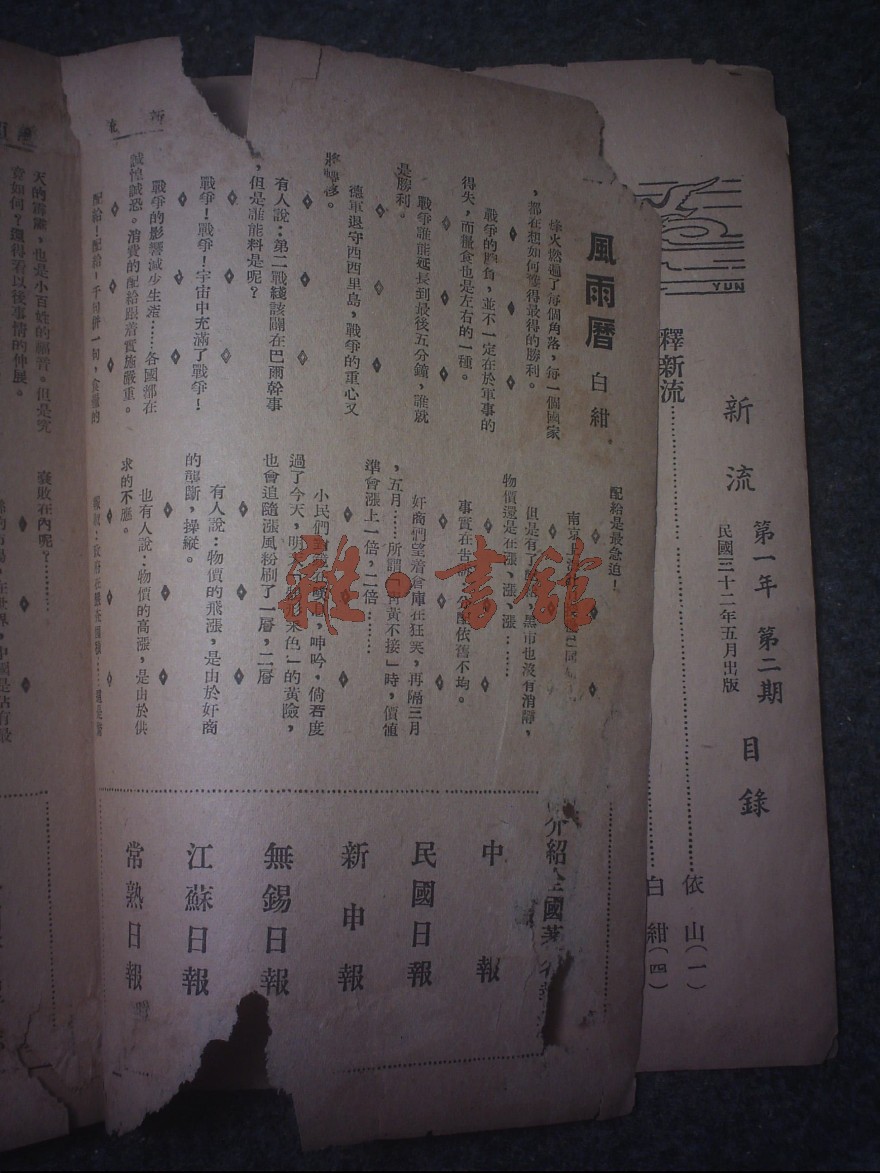 YUN
新流 第一年 第二期 目錄
民國三十二年五月出版
釋新流
依山(一)
白紺(四)
風雨曆 白紺
烽火燃遍了每個角落,每一個國家
,都在想如何獲得最得的勝利。
戰爭的四角,並不一定在於軍事的
得失,而糧食也是左右的一種。
戰爭誰能延長到最後五分鐘,誰就
是勝利。
德軍退守西西里島,戰爭的重心又
將轉移。
有人說:第二戰綫該闢在巴爾幹事
,但是誰能料是呢?
戰爭!戰爭!宇宙中充滿了戰爭!
戰爭的影響減少生產……各國都在
誠惶誠恐。消費的配給跟着實施嚴重。
配給!配給!
配給是最急迫!
南京上海
但是有了
黑市也沒有消歸,
物價還是在漲、漲、漲……
事實在告訴
分配依舊不均。
奸商們望着倉庫在狂笑,再隔三月
,五月……所謂「青黃不接」時,價值
準會漲上一倍,二倍……
小民們
呻吟,倘若度
過了今天,明天
色」的黃臉,
也會追隨漲風粉刷了一層,二層
有人說:物價的飛漲,是由於奸商
的壟斷,操縱。
也有人說:物價的高漲,是由於供
求的不應。
介紹全國著名
中報
民國日報
新申報
無錫日報
江蘇日報
常熟日報
天的霹靂,也是小百姓的福音。但是究
竟如何?還得看以後事情的伸展。
衰敗在內呢?………
雜·書館